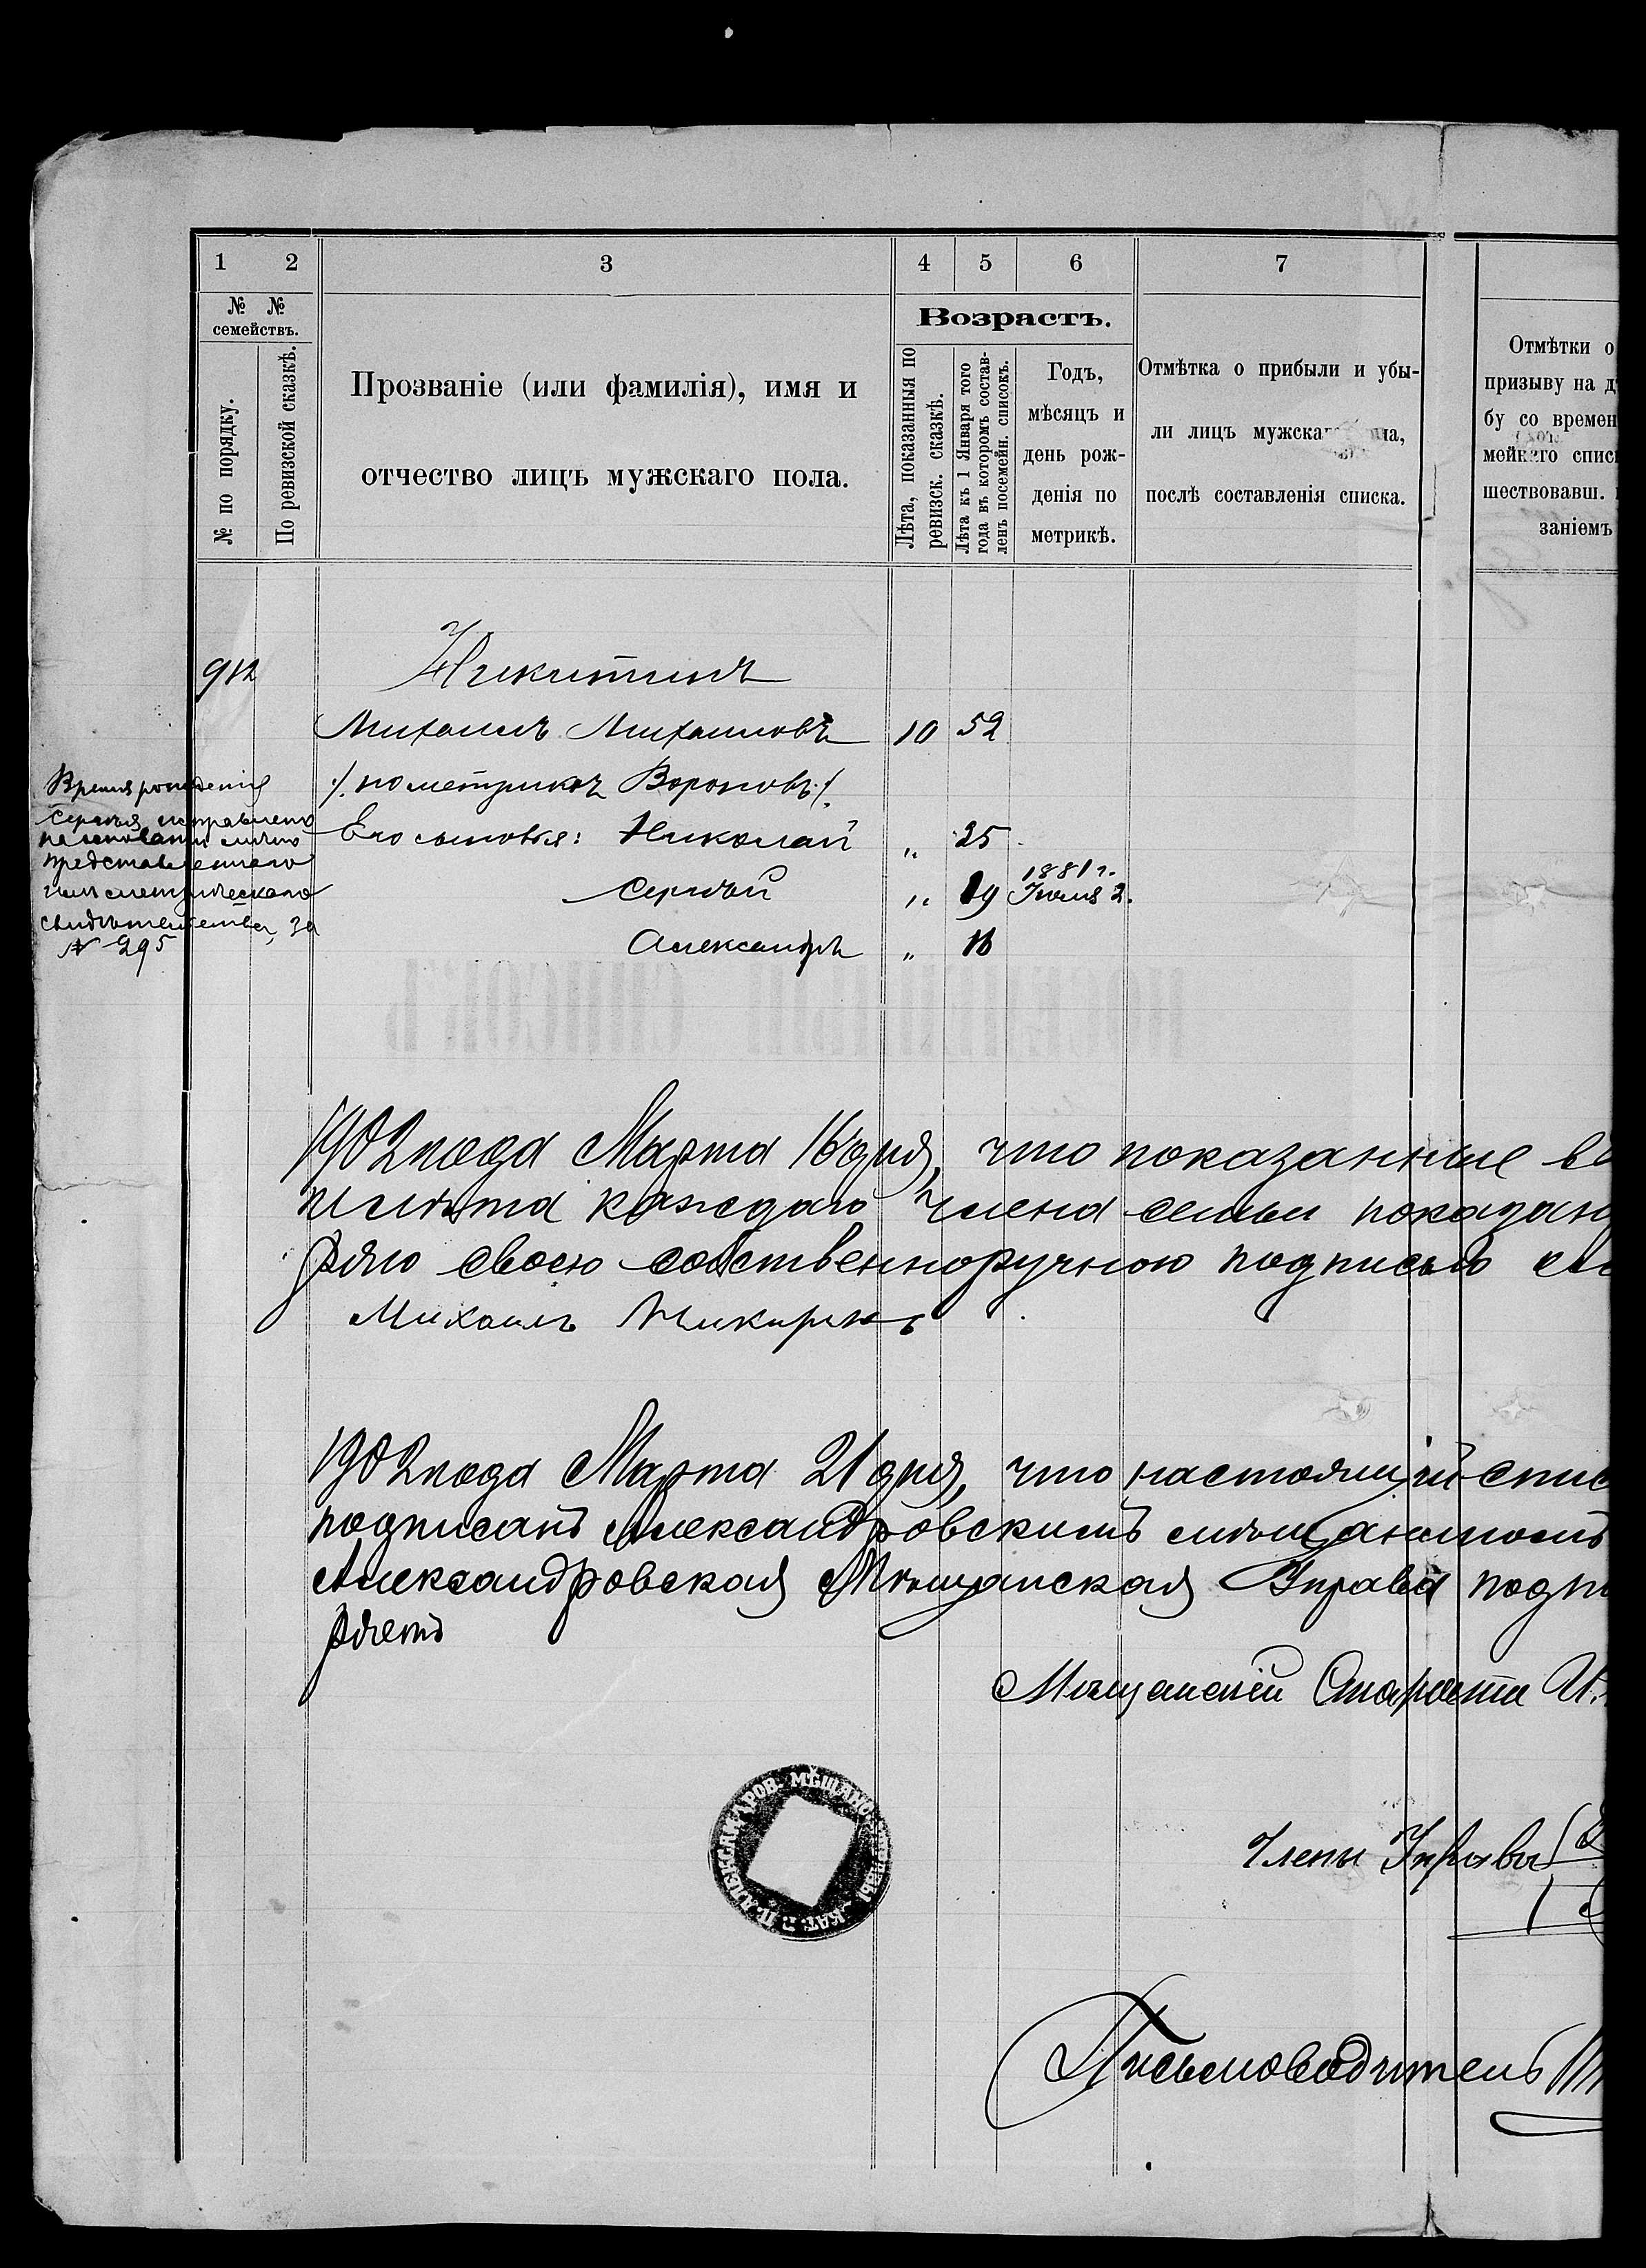 1 2 3 4 5 6 7
№ №
семействъ.
№ по порядку.
По ревизской сказкѣ.
Прозваніе (или фамилія), имя и
отчество лицъ мужскаго пола.
Возрастъ.
Лѣта, показанныя по
ревизск. сказкѣ.
Лѣта къ 1 Января того
года въ которомъ состав-
ленъ посемейн. списокъ.
Годъ,
мѣсяцъ и
день рож-
денія по
метрикѣ.
Отмѣтка о прибыли и убы-
ли лицъ мужскаго
послѣ составленія списка.
Отмѣтки о
призыву на д
бу со времен
мейнаго спис
шествовавш.
заніемъ
912 Никитинъ
Михаилъ Михаиловъ 10 52
/. по метрикѣ Вороновъ ./
Его сыновья: Николай „ 25
Сергѣй „ 19 1881 г. Июля 2.
Александръ „ 16
Время рожденія
Сергѣя исправлено
на основаніи
представленнаго
имъ метрическаго
свидѣтельства за
№ 295
1902 года Марта 16 дня, что показанные въ
и лѣта каждаго члена семьи показан
ряю своею собственноручною подписью
Михаилъ Никитинъ
1902 года Марта 21 дня, что настоящій спис
подписанъ Александровскимъ мѣщаниномъ
Александровская Мѣщанская Управа подп
ряетъ
Мѣщанскій Староста И.
Члены Управы
Письмоводитель
АЛЕКСАНДРОВ. МѢЩАНС УПРАВЫ. КАТ. Г.